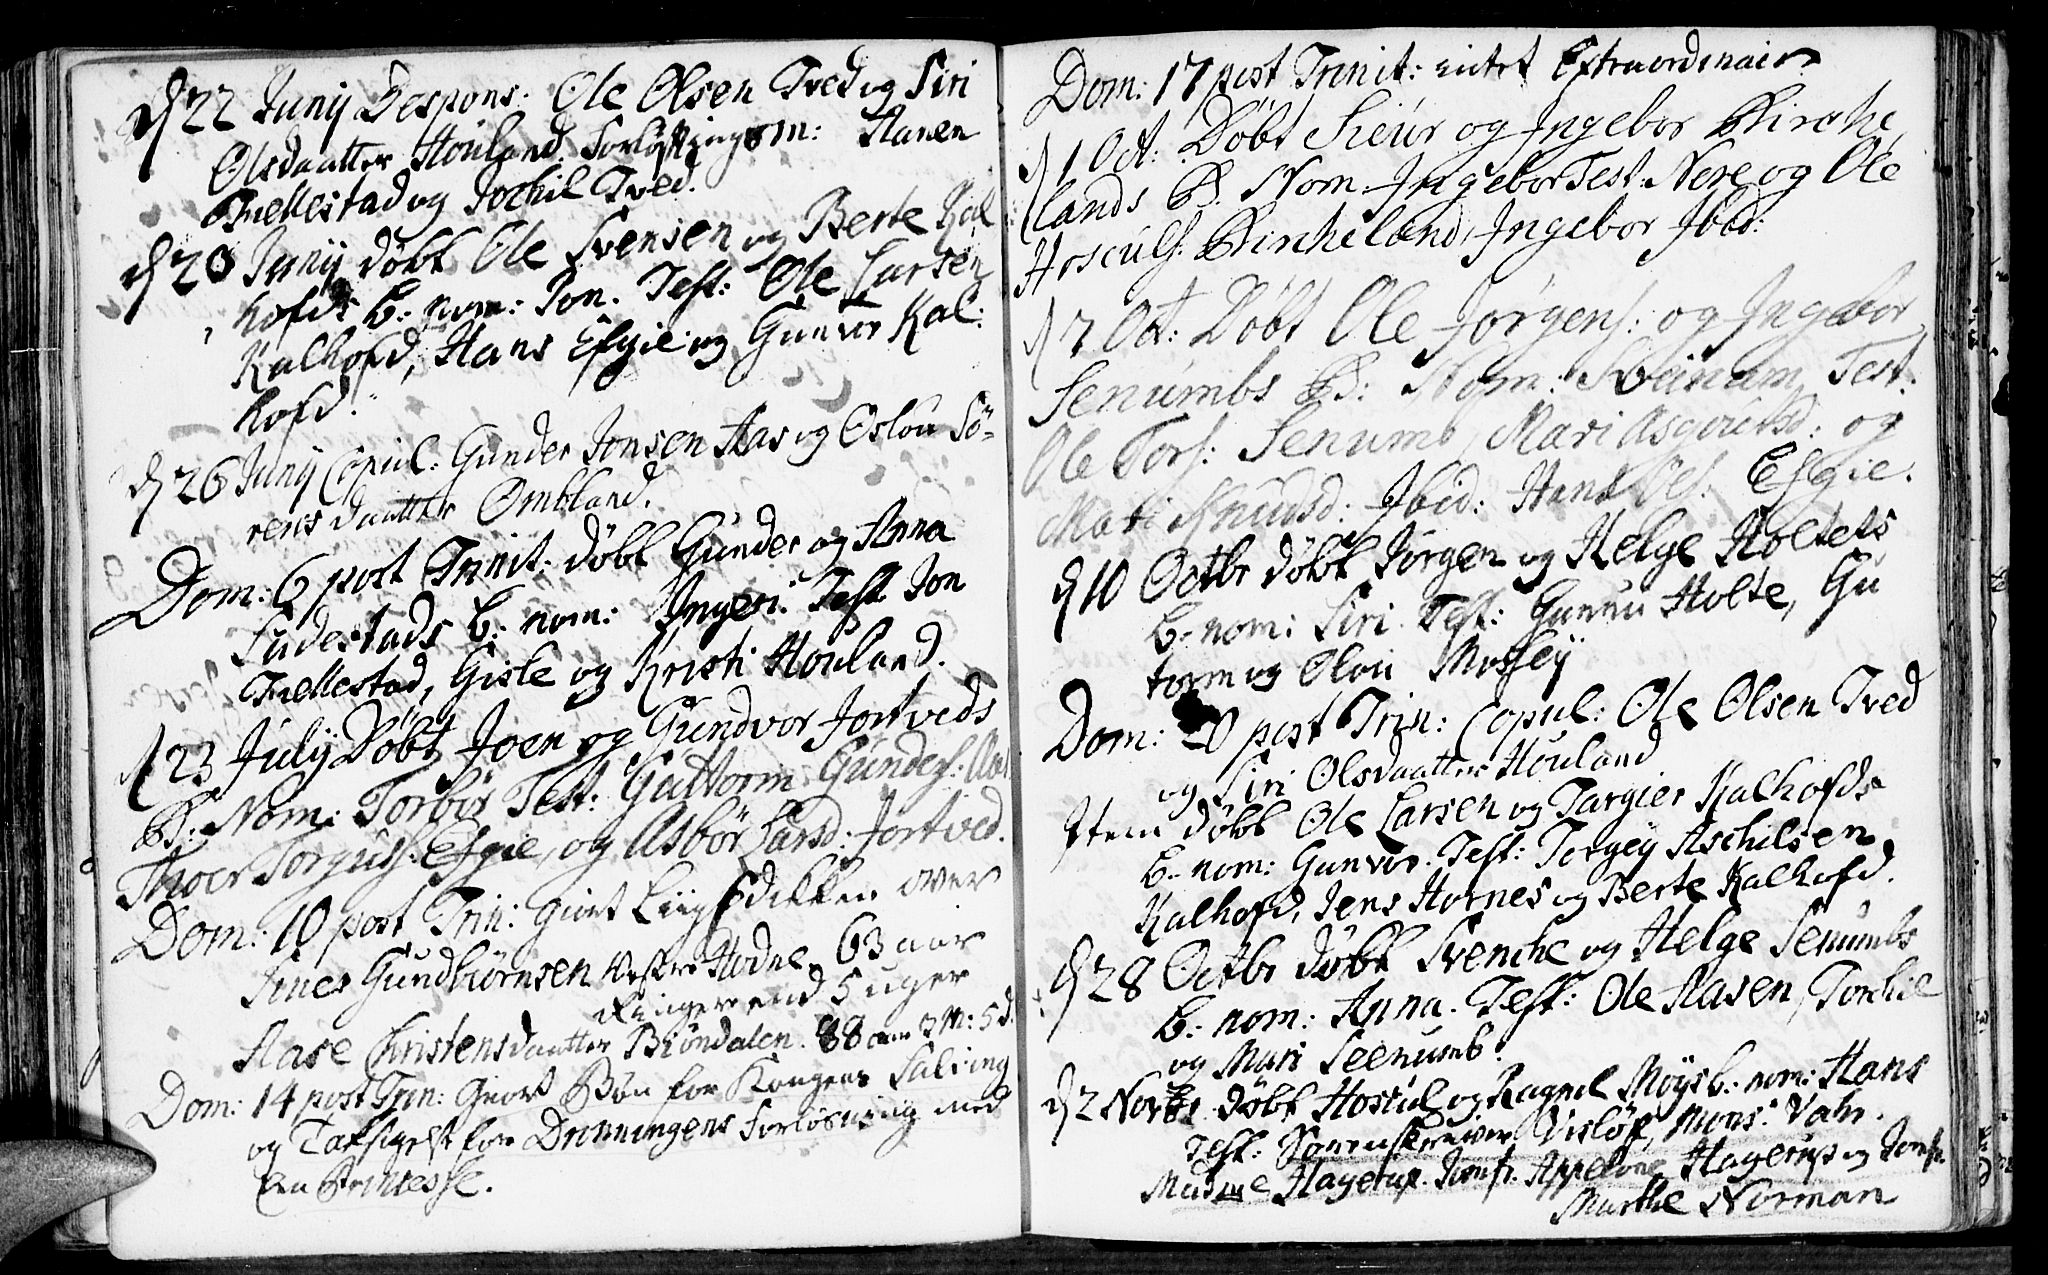 d 22 Junij Despons: Ole Olsen Tved og Siri
Olsdaatter Houland. Forløftingsm: Hanen
Tvellestad og Torkil Tved.
d 20 Junij døbt Ole Svensen og Berte Kal
hofds b: nom: Jon. Test: Ole Larsen
Kalhofd, Hans Efgie og Gunver Kal:
hofd.
d 26 Junij Copul: Gunder Jonsen Aas og Oslou Sö-
rens daatter Ombland.
Dom: 6 post Trinit: døbt Gunder og Anna
Sudestads b: nom: Ingeri. Test Jon
Tvellestad, Giste og Kristi Houland.
d 23 Julij Døbt Joen og Gundvor Jortveds
B: Nom: Torbiör Test: Guttorm Gunders:
Thoer Torgus: Efgie, og Asbör Larsd: Jortved.
Dom: 10 post Trin: giort Liigprædikken over
Sines Gundbiörnsen Vestre Hodne 63 aar
ringere end 5 uger
Aase Christensdaatter Biöndalen. 88 aar 3 M: 5 d.
Dom: 14 post Trin: Giort Bön for Kongens Salving
og Taksigelst for Dronningens Forlösning med
en Prinsesse.
Dom: 17 post Trinit: intet Extraordinair
d 1 Oct: Døbt Sieur og Ingebor Birche
lands B. Nom. Ingebor Test: Nere og Ole
Hoscuis: Birkeland, Ingebor Ibid:
d 7 Oct: Døbt Ole Jörgens: og Ingebor
Senumbs B: Nom: Sveinum Test.
Ole Tors: Senumb, Mari Asgoutsd: og
Mari Knudsd: Ibid: Hans Ols. Efgie.
d 10 Octbr døbt Jörgen og Helge Holtets
b: nom: Siri. Test: Gunnu Holte, Gu
torm og Olou Mosseij
Dom: 20 post Trin: Copul: Ole Olsen Tved
og Siri Olsdaatter Houland
Item døbt Ole Larsen og Targier Kalhofds
b: nom: Gunver. Test: Torgeij Aschilsen
Kalhofd, Jens Hornes og Berte Kalhofd.
d 28 Octbr døbt Svenche og Helge Senumbs
b: nom: Anna. Test: Ole Aasen, Torkil
og Mari Seenumb.
d 2 Novbr døbt Hoscul og Ragnil Moijs b: nom: Hans
Test: Sorenskriver Vislöf, Mons: Vahr.
Madme Hagerup. Jomfr. Appelone Hagerup og Jomfr.
Marthe Norman